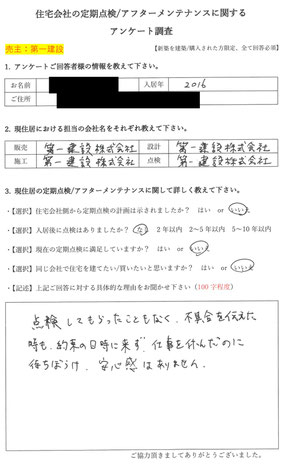 住宅会社の定期点検/アフターメンテナンスに関する
アンケート調査
売主：第一建設
【新築を建築/購入された方限定、全て回答必須】
1. アンケートご回答者様の情報を教えて下さい。
お名前 入居年 2016
ご住所
2. 現住居における担当の会社名をそれぞれ教えて下さい。
販売 第一建設株式会社 設計 第一建設株式会社
施工 第一建設株式会社 点検 第一建設株式会社
3. 現住居の定期点検/アフターメンテナンスに関して詳しく教えて下さい。
・【選択】住宅会社側から定期点検の計画は示されましたか？ はい or いいえ
・【選択】入居後に点検はありましたか？ なし 2年以内 2~5年以内 5~10年以内
・【選択】現在の定期点検に満足していますか？ はい or いいえ
・【選択】同じ会社で住宅を建てたい/買いたいと思いますか？ はい or いいえ
・【記述】上記ご回答に対する具体的な理由をお聞かせ下さい（100字程度）
点検してもらったこともなく、不具合を伝えた
時も、約束の日時に来ず、仕事を休んだのに
待ちぼうけ、安心感はありません。
ご協力頂きましてありがとうございました。